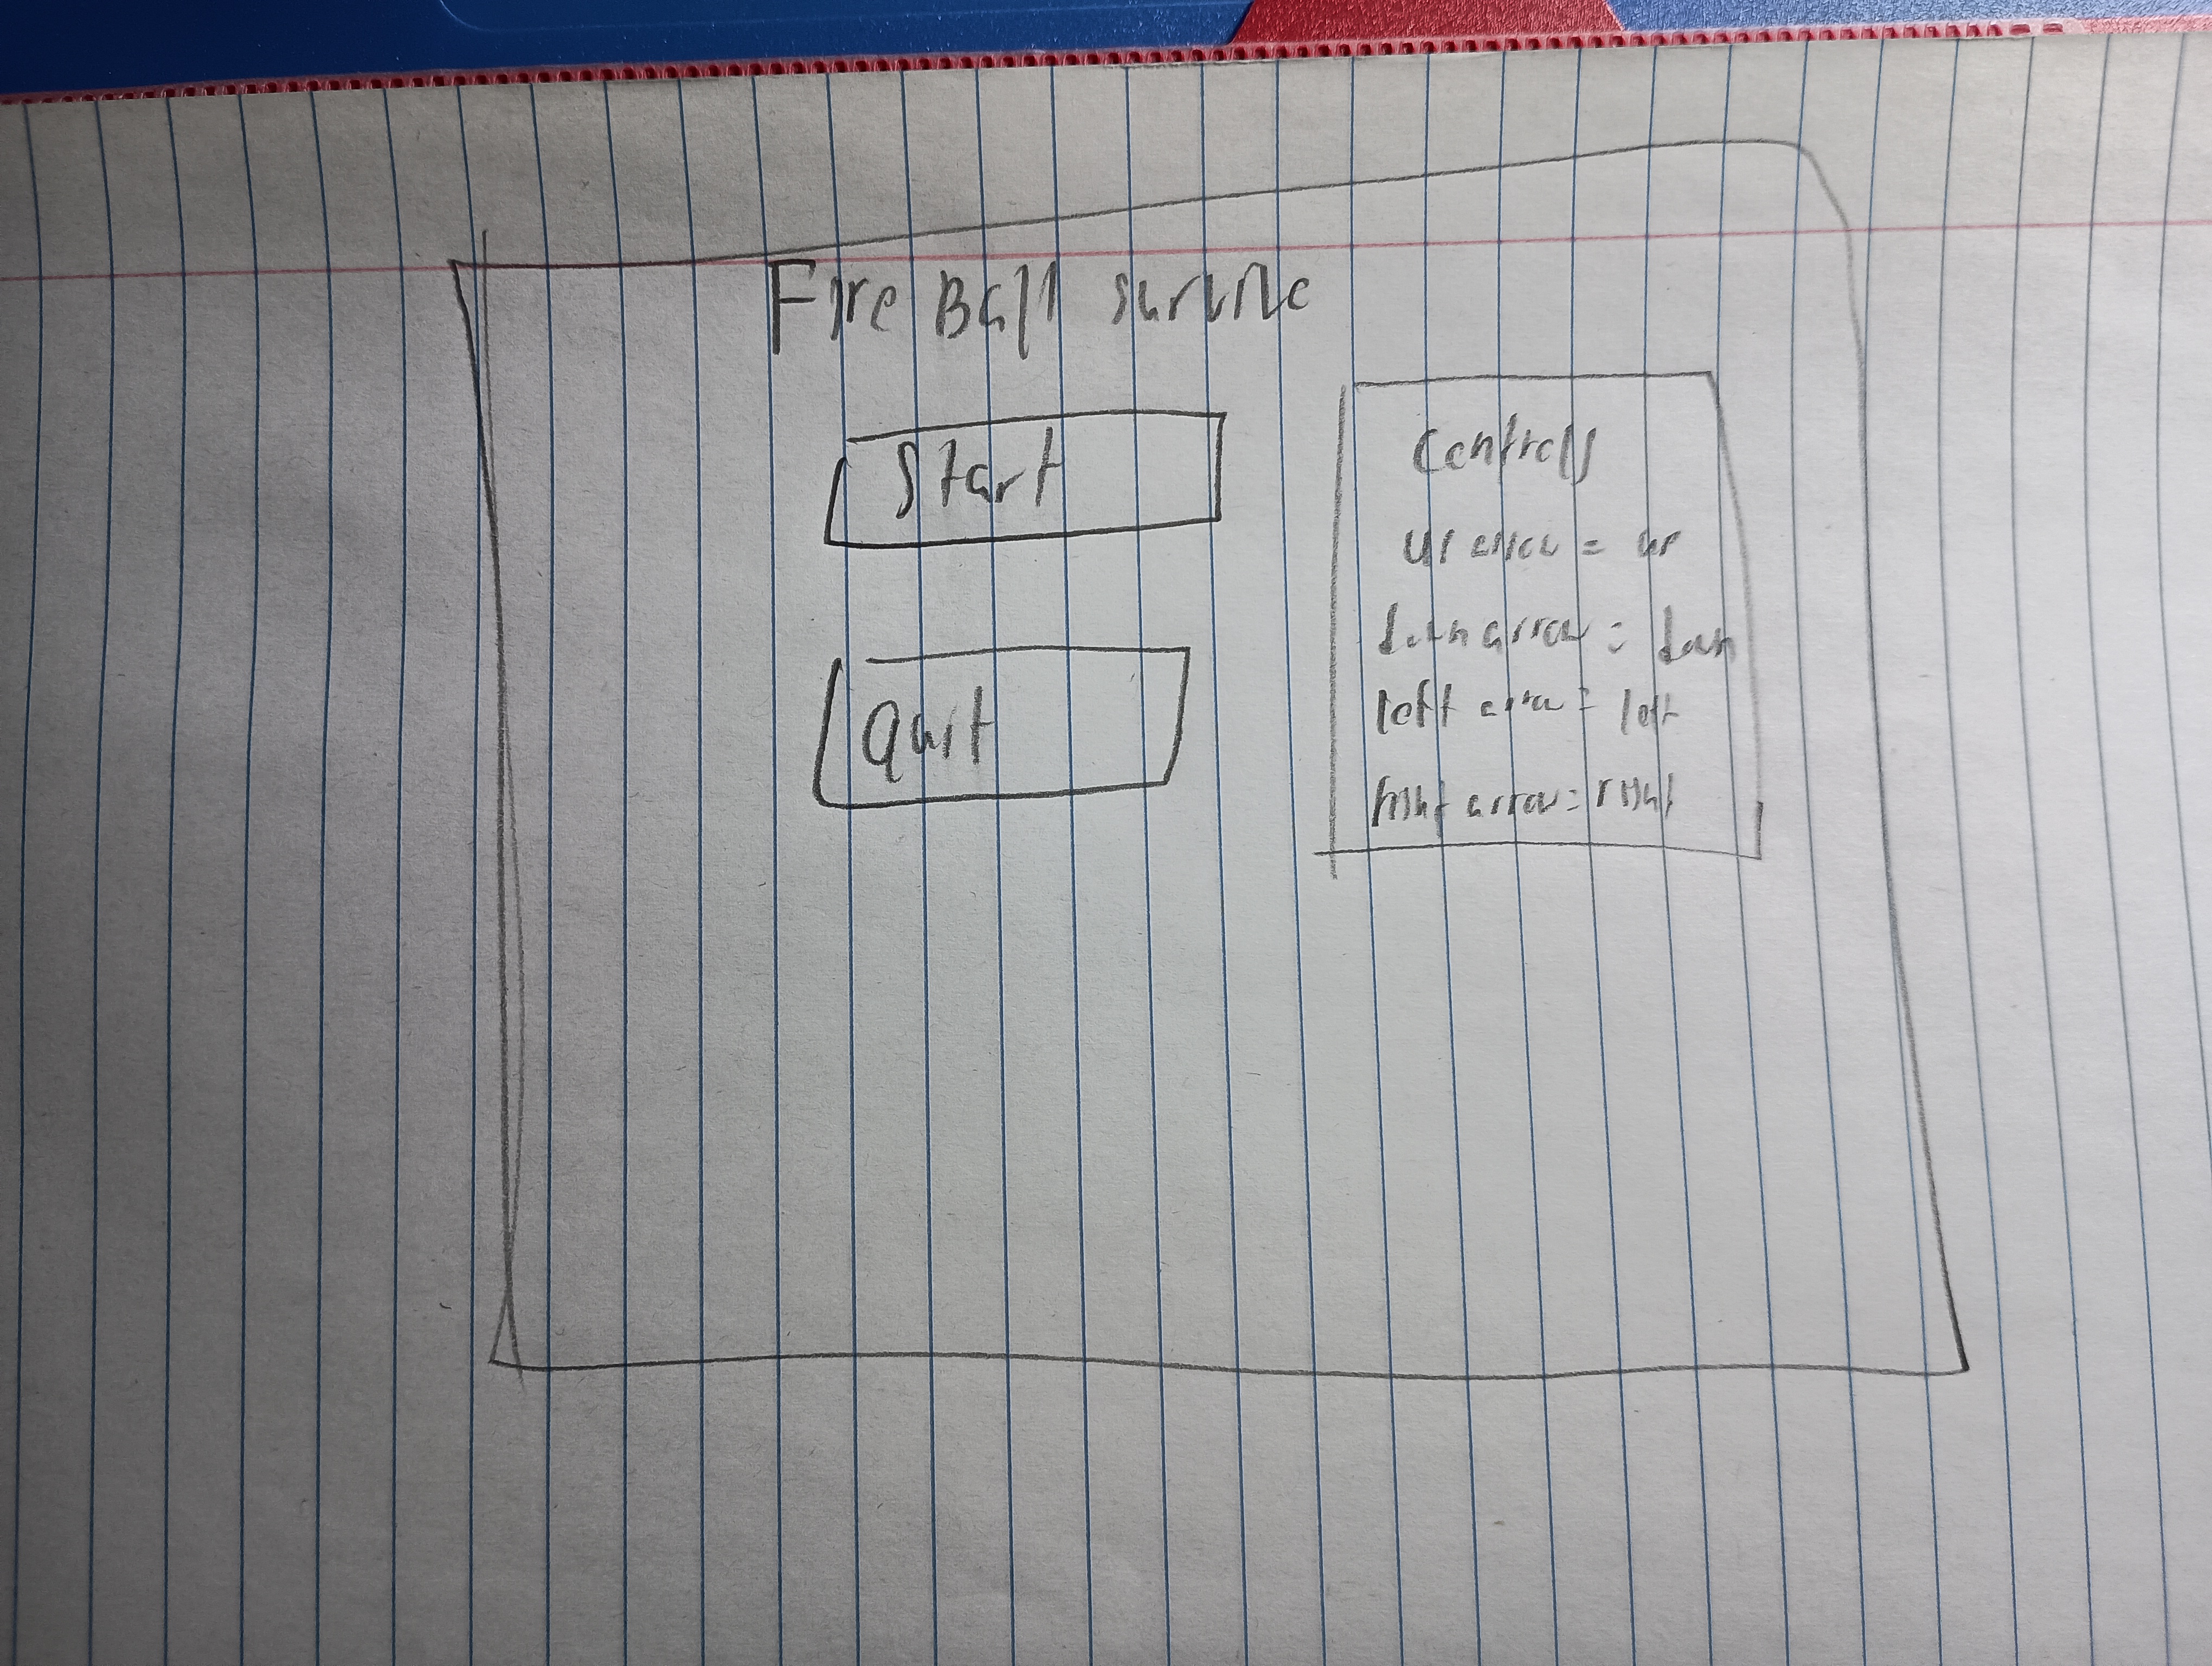 Fire Ball survive
Start
Quit
Controls
up arrow = up
down arrow = down
left arrow = left
right arrow = right